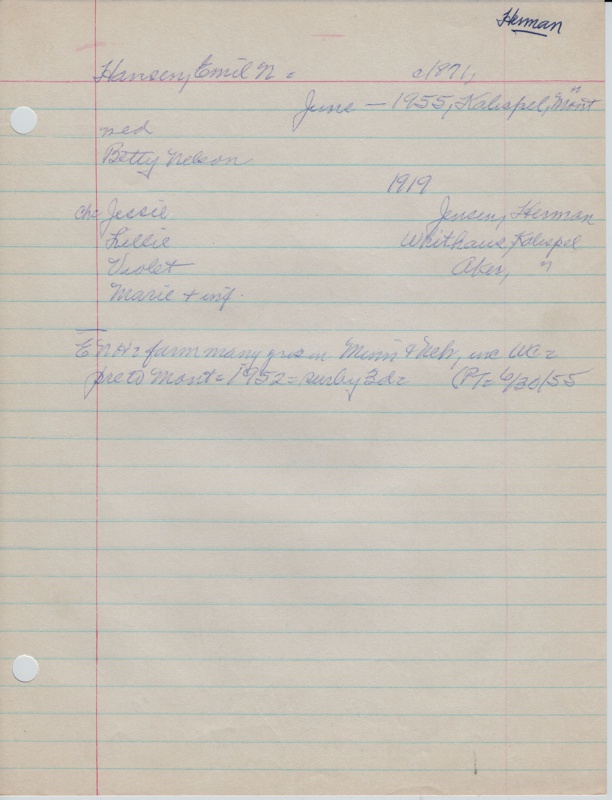 Herman
Hansen, Emil N = c1871,
June — 1955, Kalispel, Mont
med
Betty Nelson
1919
Chc Jessie Jensen, Herman
Lillie Whithaus, Kalispel
Violet Aker, "
Marie + inf.
E N H = farm many yrs in Minn & Neb, inc WC =
pre to Mont = 1952 = surby 3d = (PT = 6/30/55